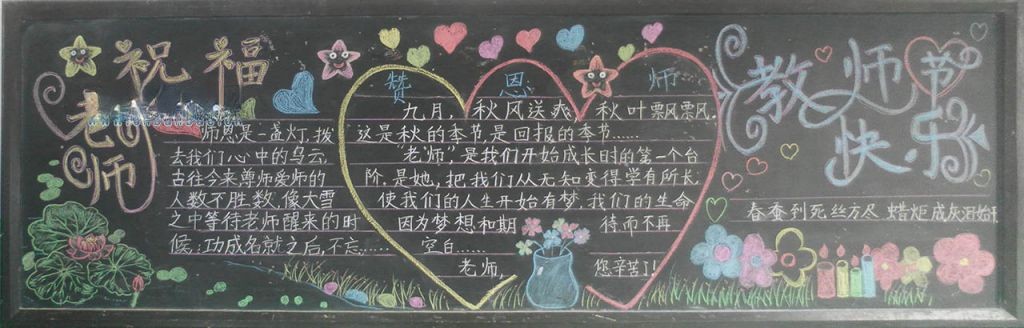 祝福
老师
师恩是一盏灯，拨
去我们心中的乌云，
古往今来尊师爱师的
人数不胜数，像大雪
之中等待老师醒来的时
候；功成名就之后，不忘……
赞 恩 师
九月，秋风送爽，秋叶飘飘。
这是秋的季节，是回报的季节……
“老师”，是我们开始成长时的第一个台
阶。是她，把我们从无知变得学有所长，
使我们的人生开始有梦，我们的生命
因为梦想和期 待而不再
空白……
老师， 您辛苦了！
教师节
快乐
春蚕到死丝方尽 蜡炬成灰泪始干